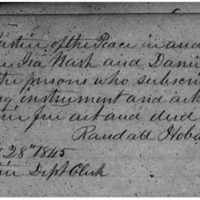 Justice of the Peace in and
Ira Nash and Daniel
the persons who subscri
instrument and ack
fire act and deed
Randall Hoba
28th 1845
Dept Clerk